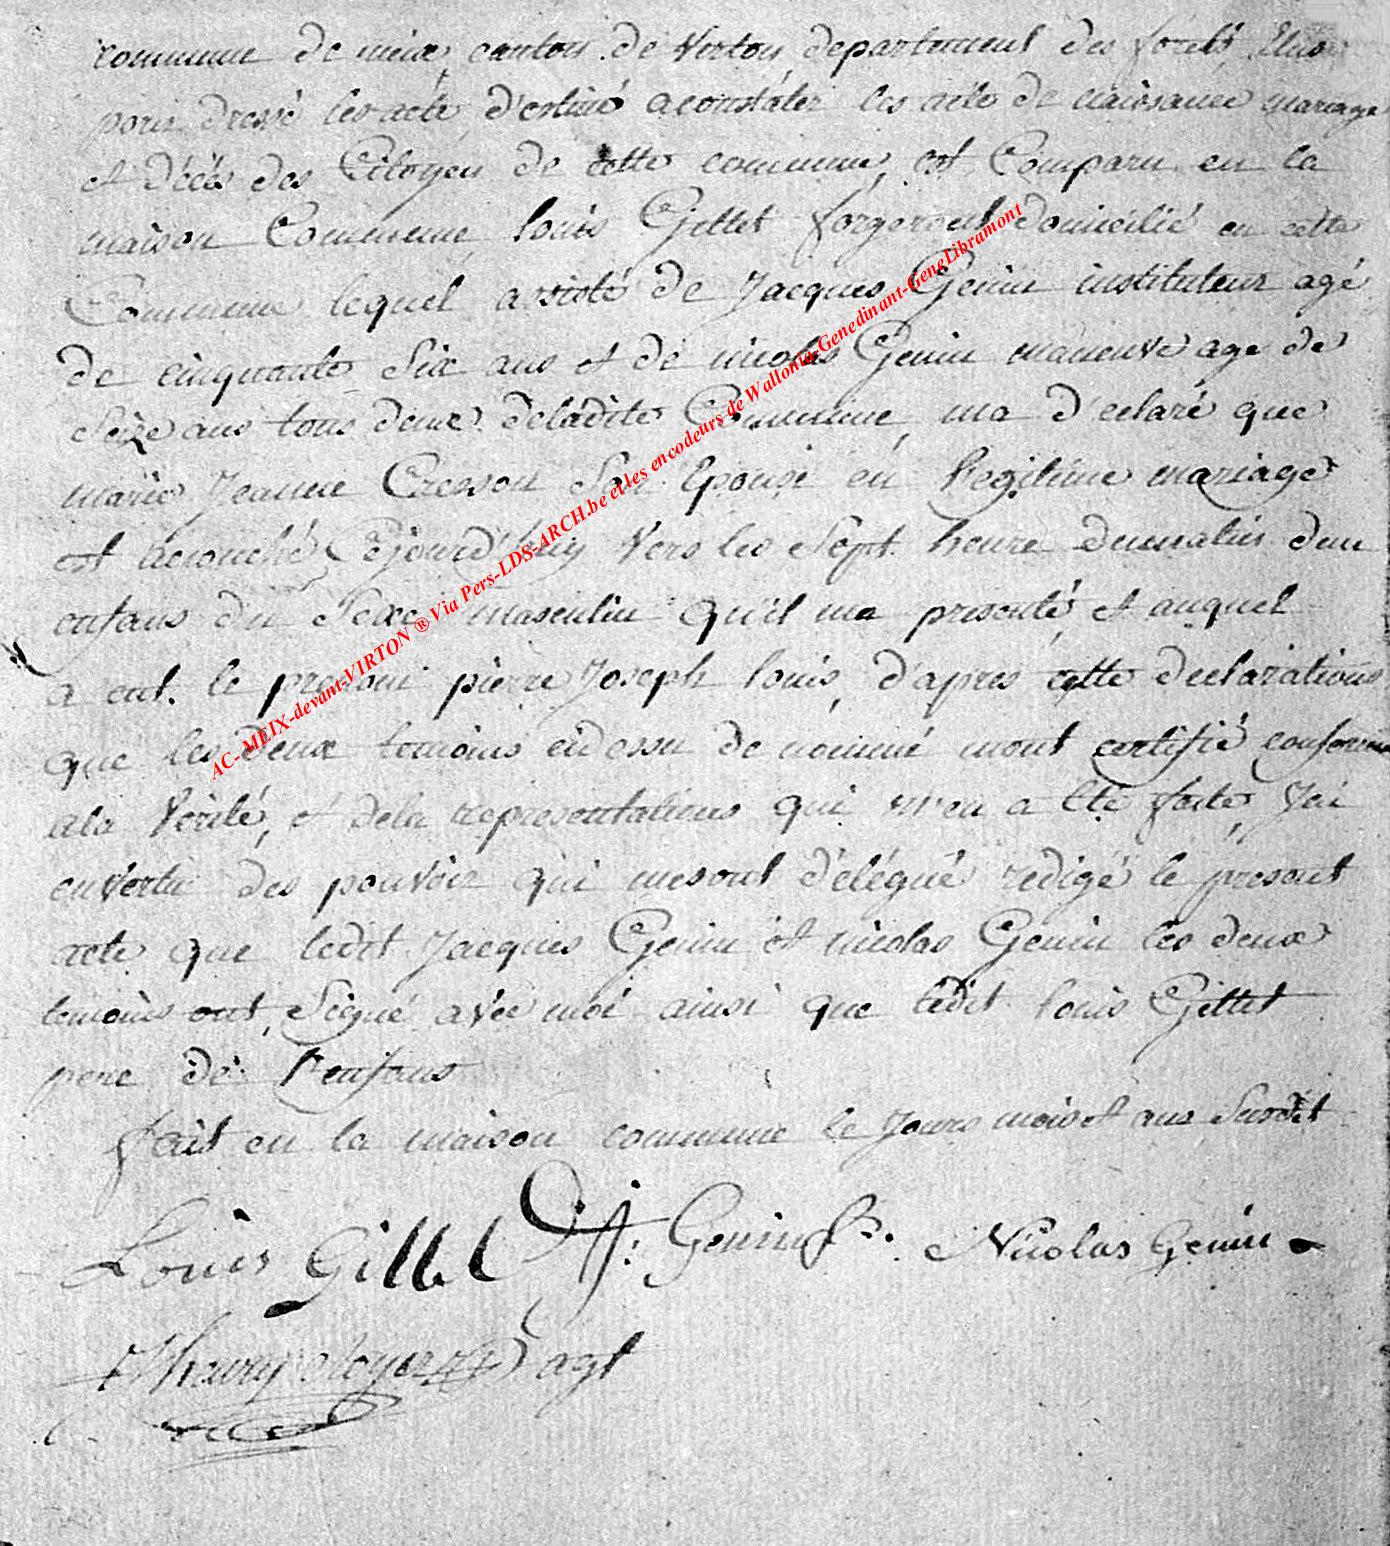 commune de meix canton de Virton departement des forets, Elus
pour dressé les acte d'estiné a constater les acte de naissance mariage
et décés des Citoyen de cette commune, est Comparu en la
maison Commune louis Gillet forgeront domicilié en cette
Commune lequel assisté de Jacques Genin instituteur agé
de cinquante Six ans et de nicolas Genin maneuvre age de
Seize ans tous deux deladite Commune, ma d'eclaré que
marie Jeanne Cresson Son Epouse en legitime mariage
est acouché Cejourd'huy Vers les Sept heure dumatin dun
enfans du Sexe masculin qu'il ma presenté, et auquel
a eut. le prenom pierre Joseph louis, d'apres cette declarations
que les deux temoins cidessu de nommé mont certifié conforme
ala Verité, et dela representations qui m'en a Eté faite, J'ai
envertu des pouvoir qui mesont délégué redigé le present
acte que ledit Jacques Genin et nicolas Genin les deux
temoins ont, Signé avec moi ainsi que ledit louis Gillet
pere de l'enfans
fait en la maison commune le Jours mois et ans Susdit
Louis Gillet J: Genin Nicolas Genin
agt
AC-MEIX-devant-VIRTON ® Via Pers-LDS-ARCH.be et les encodeurs de Wallonia-Genedinant-GeneLibramont